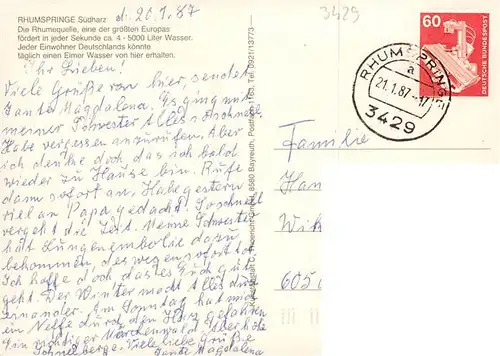 RHUMSPRINGE Südharz
Die Rhumequelle, eine der größten Europas
fördert in jeder Sekunde ca. 4 - 5000 Liter Wasser.
Jeder Einwohner Deutschlands könnte
täglich einen Eimer Wasser von hier erhalten.
d. 20.1.87
3429
Ihr Lieben!
Viele Grüße von hier, sendet
Tante Magdalena. Es ging mit
meiner Schwester alles so schnell
Habe vergessen anzurufen. Aber
ich denke doch das ich bald
wieder zu Hause bin. Rufe
dann sofort an. Habe gestern
viel an Papa gedacht. So schnell
vergeht die Zeit. Meine Schwester
hat Lungenembolie dazu
bekommen, deswegen sofort
Ich hoffe doch das es Euch gut
geht. Der Winter macht alles
einander. Am Sonntag hat mich
ein Neffe durch den Harz gefahren
Ein richtiger Märchenwald. Aber ich die
Schneeberge. Viele liebe Grüße
Tante Magdalena
8580 Bayreuth, Postfach 1163, Tel. 0921/13773
60
DEUTSCHE BUNDESPOST
RHUMSPRINGE
a
21.1.87-17
3429
Familie
605